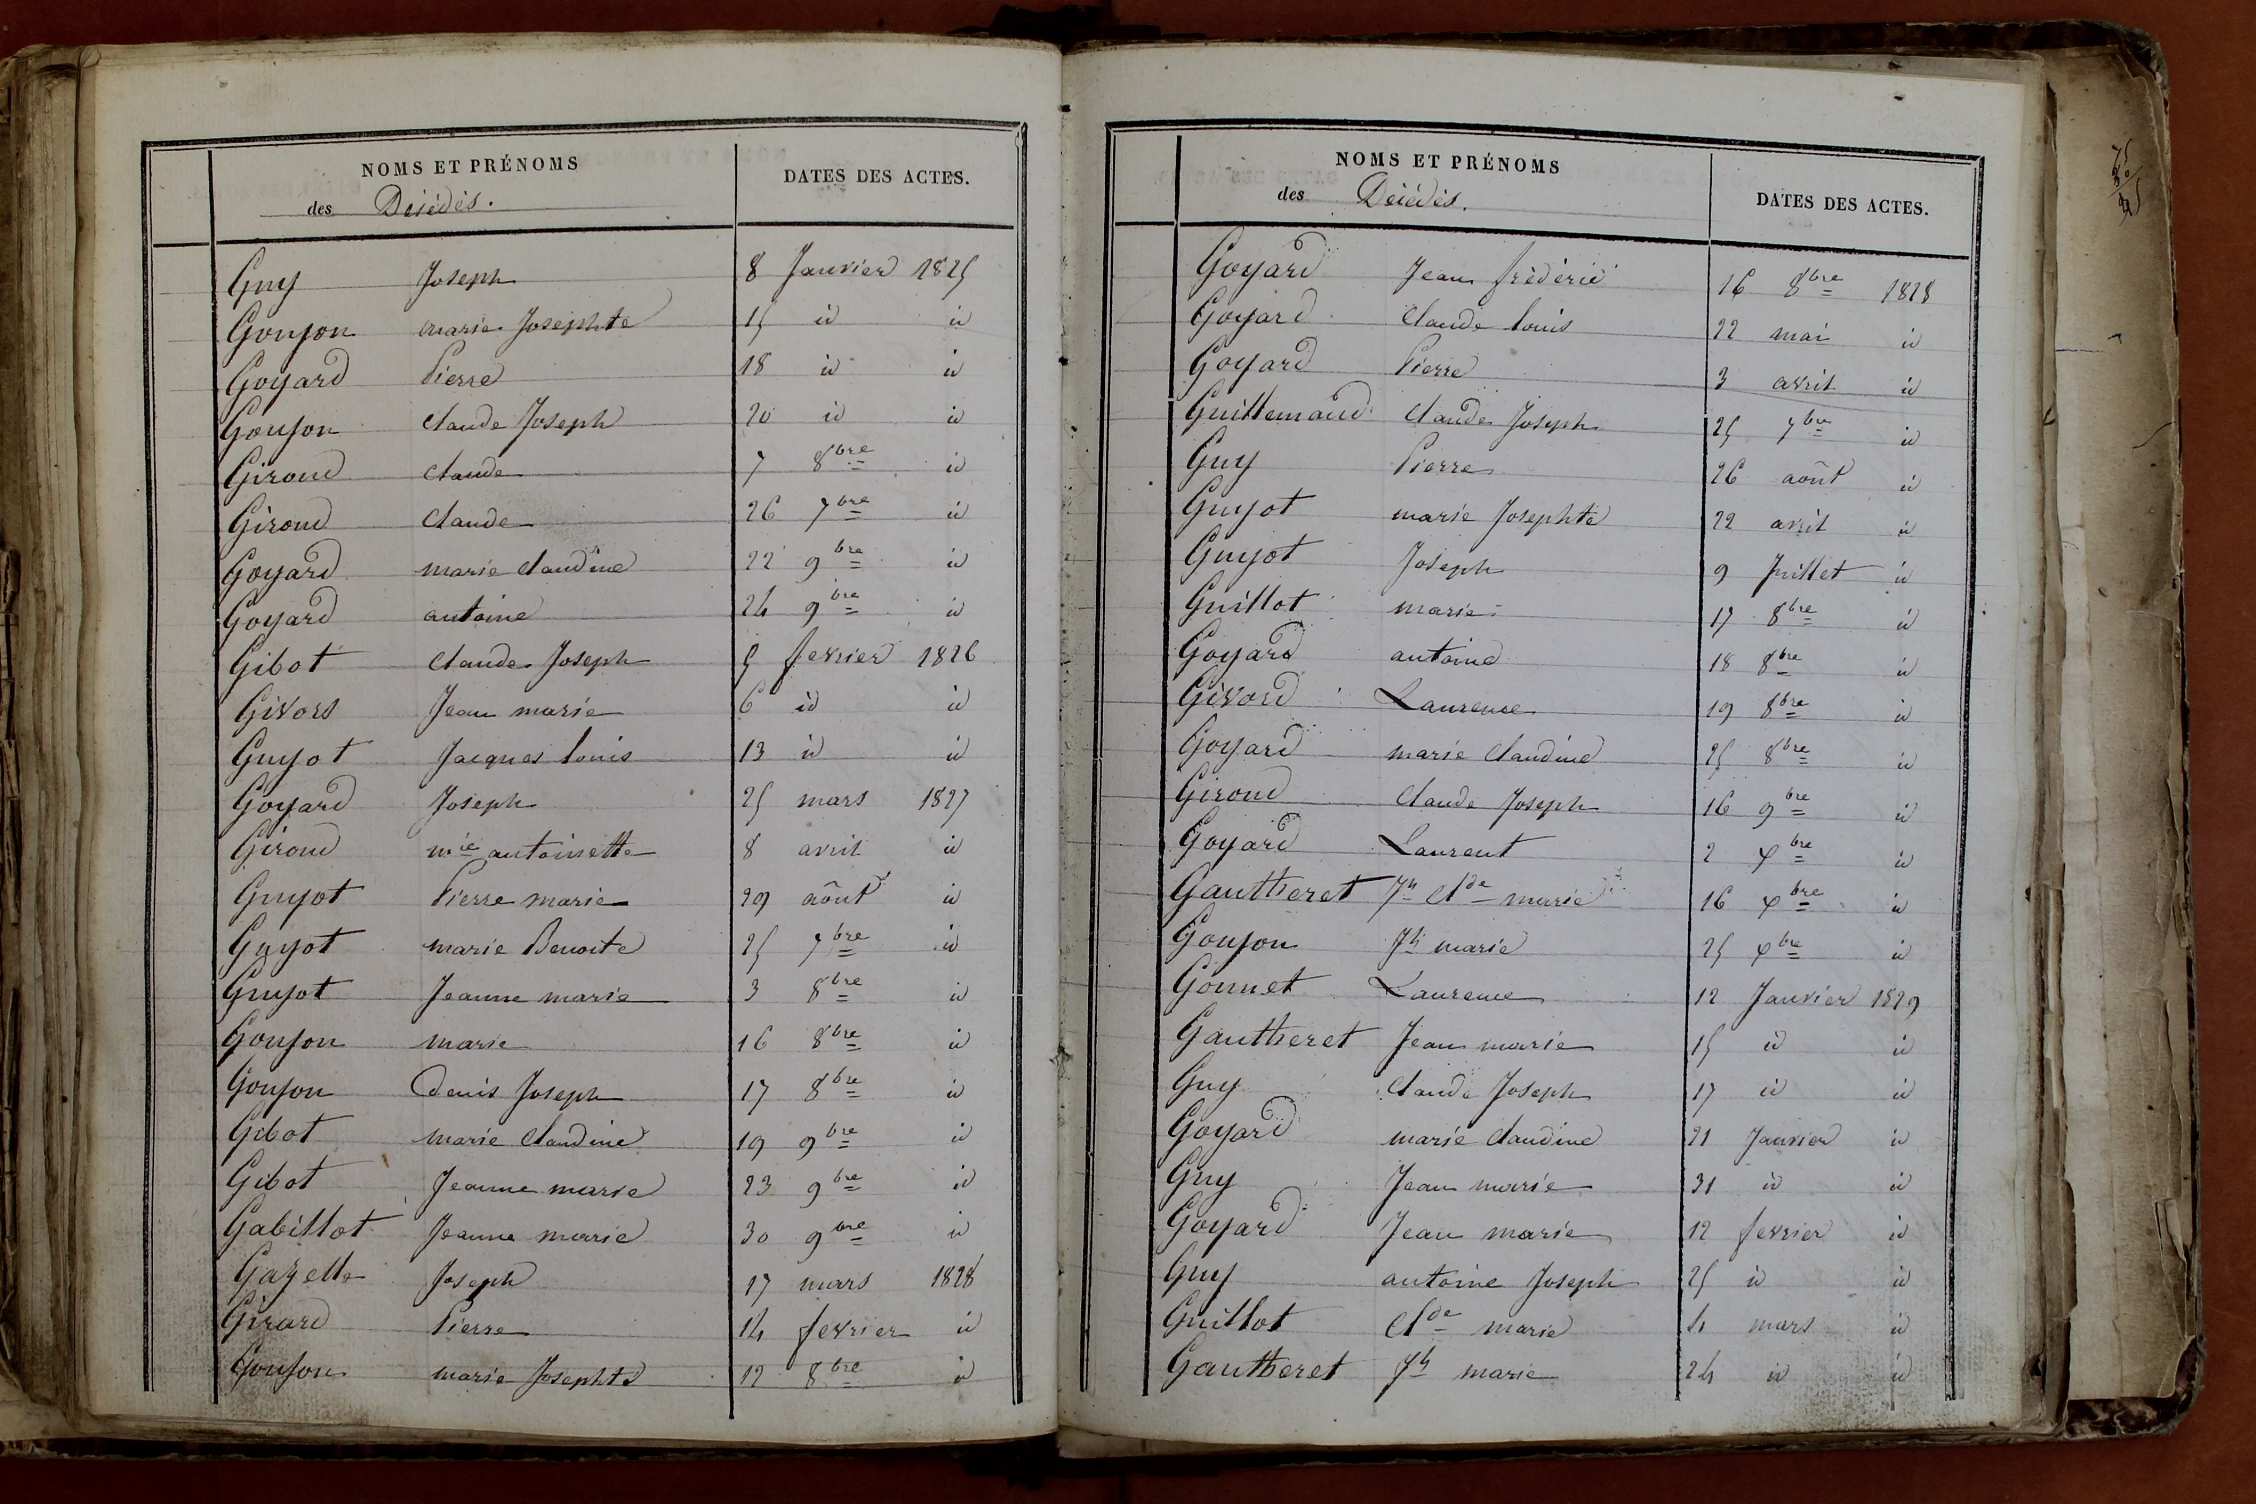 NOMS ET PRÉNOMS
des Décédés.
DATES DES ACTES.
Guy Joseph 8 Janvier 1825
Goujon marie Josephte 15 id id
Goyard Pierre 18 id id
Goujon Claude Joseph 20 id id
Giroud Claude 7 8bre id
Giroud Claude 26 7bre id
Goyard marie Claudine 22 9bre id
Goyard antoine 24 9bre id
Gibot Claude Joseph 5 fevrier 1826
Givors Jean marie 6 id id
Guyot Jacques louis 13 id id
Goyard Joseph 25 mars 1827
Giroud mie antoinette 8 avril id
Guyot Pierre marie 29 août id
Guyot marie Benoite 25 7bre id
Guyot Jeanne marie 3 8bre id
Goujon marie 16 8bre id
Goujon Denis Joseph 17 8bre id
Gibot marie Claudine 19 9bre id
Gibot Jeanne marie 23 9bre id
Gabillot Jeanne marie 30 9bre id
Gazelle Joseph 17 mars 1828
Girard Pierre 14 fevrier id
Goujon marie Josephte 12 8bre id
NOMS ET PRÉNOMS
des Décédés.
DATES DES ACTES.
Goyard Jean frédéric 16 8bre 1828
Goyard Claude louis 22 mai id
Goyard Pierre 3 avril id
Guillemaud Claude Joseph 25 7bre id
Guy Pierre 26 août id
Guyot marie Josephte 22 avril id
Guyot Joseph 9 Juillet id
Guillot marie 17 8bre id
Goyard antoine 18 8bre id
Givord Laurence 19 8bre id
Goyard marie Claudine 25 8bre id
Giroud Claude Joseph 16 9bre id
Goyard Laurent 2 Xbre id
Gautheret Jh Clde marie 16 Xbre id
Goujon Jh marie 25 Xbre id
Gonnet Laurence 12 Janvier 1829
Gautheret Jean marie 15 id id
Guy Claude Joseph 17 id id
Goyard marie Claudine 21 Janvier id
Guy Jean marie 31 id id
Goyard Jean marie 12 fevrier id
Guy antoine Joseph 25 id id
Guillot Clde marie 4 mars id
Gautheret Jh marie 24 id id